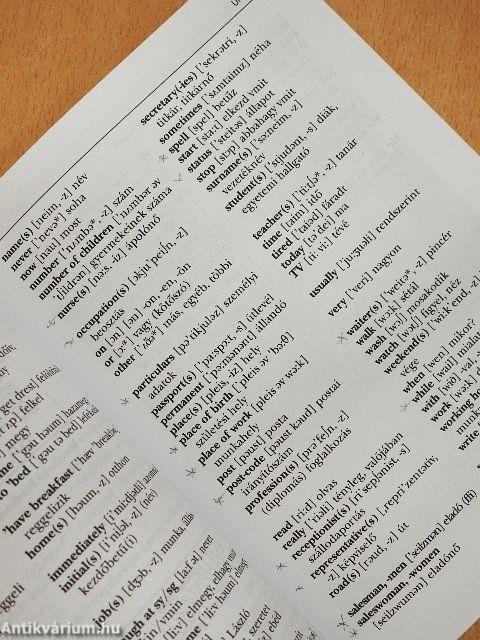 name(s) [neim, -z] név
never ['nevə*] soha
now [nau] most
number ['nʌmbə* -z] szám
number of children ['nʌmbər əv
'tʃildrən] gyermekeinek száma
nurse(s) [nɜːs, -iz] ápolónő
occupation(s) [ɔkju'peiʃn, -z]
beosztás
on [ɔn] [ən] -on, -en, -ön
or [ɔː*] vagy (kötőszó)
other ['ʌðə*] más, egyéb, többi
particulars [pə'tikjuləz] személyi
adatok
passport(s) ['pɑːspɔːt, -s] útlevél
permanent ['pɜːmənənt] állandó
place(s) [pleis, -iz] hely
place of birth ['pleis əv 'bɜːθ]
születési hely
place of work [pleis əv wɜːk]
munkahely
post [pəust] posta
post-code [pəust kəud] postai
irányítószám
profession(s) [prə'feʃn, -z]
(diplomás) foglalkozás
read [riːd] olvas
really ['riəli] tényleg, valójában
receptionist(s) [ri'sepʃənist, -s]
szállodaportás
representative(s) [,repri'zentətiv,
-z] képviselő
road(s) [rəud, -z] út
salesman, -men ['seilzmən] eladó (ffi)
saleswoman, -women
[seilzwumən] eladónő
secretary(-ies) ['sekrətri, -z]
titkár, titkárnő
sometimes ['sʌmtaimz] néha
spell [spel] betűz
start [stɑːt] elkezd vmit
status ['steitəs] állapot
stop [stɔp] abbahagy vmit
surname(s) ['sɜːneim, -z]
vezetéknév
student(s) ['stjudənt, -s] diák,
egyetemi hallgató
teacher(s) ['tiːtʃə* -z] tanár
time [taim] idő
tired ['taiəd] fáradt
today [tə'dei] ma
TV [tiː viː] tévé
usually ['juːʒuəli] rendszerint
very ['veri] nagyon
waiter(s) ['weitə* -z] pincér
walk [wɔːk] sétál
wash [wɔʃ] mosakodik
watch [wɔtʃ] figyel, néz
weekend(s) [wiːk'end, -z]
vége
when [wen] mikor?
while [wail]
with [wið]
work [wɜːk]
working
write
get dres] felöltöz
felkel
'have breakfast ['hæv
reggelizik
home(s) [həum, -z] otthon
immediately [i'miːdjətli]
initial(s) [i'niʃəl, -z] (név)
kezdőbetű(i)
job(s) [dʒɔb, -z] munka,
László
Antikvárium.hu